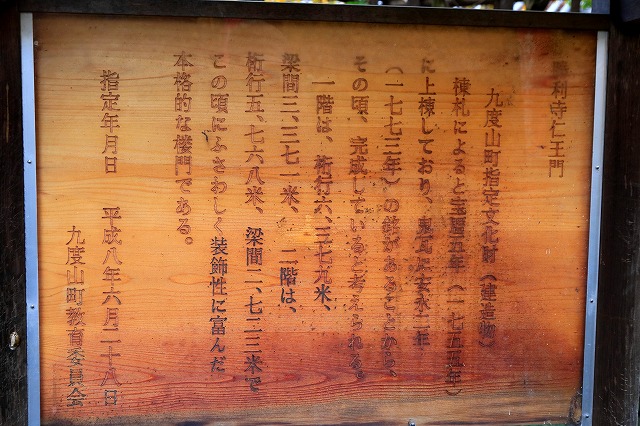 勝利寺仁王門
九度山町指定文化財（建造物）
棟札によると宝暦五年（一七五五年）
に上棟しており、鬼瓦に安永二年
（一七七三年）の銘があることから、
その頃、完成していると考えられる。
一階は、桁行六、三七九米、
梁間三、三七一米、 二階は、
桁行五、七六八米、梁間二、七二三米で
この頃にふさわしく装飾性に富んだ
本格的な楼門である。
指定年月日 平成八年六月二十八日
九度山町教育委員会